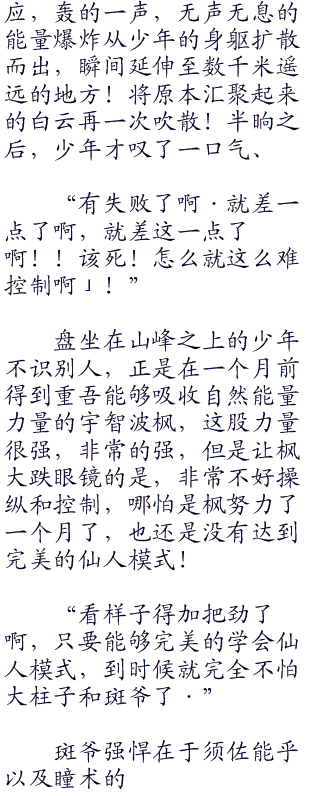 应，轰的一声，无声无息的
能量爆炸从少年的身躯扩散
而出，瞬间延伸至数千米遥
远的地方！将原本汇聚起来
的白云再一次吹散！半晌之
后，少年才叹了一口气、
“有失败了啊·就差一
点了啊，就差这一点了
啊！！该死！怎么就这么难
控制啊」！”
盘坐在山峰之上的少年
不识别人，正是在一个月前
得到重吾能够吸收自然能量
力量的宇智波枫，这股力量
很强，非常的强，但是让枫
大跌眼镜的是，非常不好操
纵和控制，哪怕是枫努力了
一个月了，也还是没有达到
完美的仙人模式！
“看样子得加把劲了
啊，只要能够完美的学会仙
人模式，到时候就完全不怕
大柱子和斑爷了·”
斑爷强悍在于须佐能乎
以及瞳术的